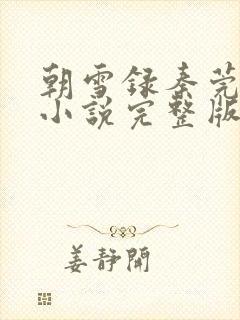 朝雪録秦莞
小說完整版
姜静閒